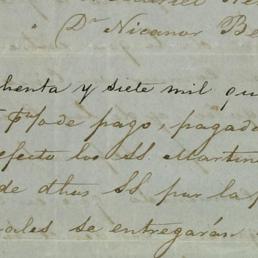 Dr Nicanor Be
henta y siete mil qu
de pago, pagado
efecto los SS. Martin
de dhos SS por la
ales se entregarán